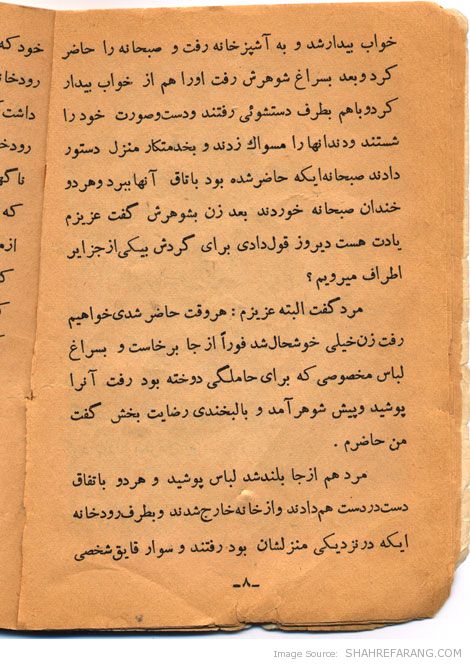 خواب بیدارشد و به آشپزخانه رفت و صبحانه را حاضر
کرد وبعد بسراغ شوهرش رفت اورا هم از خواب بیدار
کردو باهم بطرف دستشوئی رفتند ودست وصورت خود را
شستند ودندانها را مسواک زدند و بخدمتکار منزل دستور
دادند صبحانه ایکه حاضرشده بود باتاق آنها ببرد وهردو
خندان صبحانه خوردند بعد زن بشوهرش گفت عزیزم
یادت هست دیروز قول دادی برای گردش بیکی از جزایر
اطراف میرویم ؟
مرد گفت البته عزیزم : هروقت حاضر شدی خواهیم
رفت زن خیلی خوشحال شد فوراً از جا برخاست و بسراغ
لباس مخصوصی که برای حاملگی دوخته بود رفت آنرا
پوشید وپیش شوهر آمد و بالبخندی رضایت بخش گفت
من حاضرم .
مرد هم از جا بلند شد لباس پوشید و هردو باتفاق
دست در دست هم دادند واز خانه خارج شدند وبطرف رودخانه
ایکه در نزدیکی منزلشان بود رفتند و سوار قایق شخصی
-۸-
خود که
رودخا
داشت
رودخ
ناگه
که
ازم
Image Source: SHAHREFARANG.COM